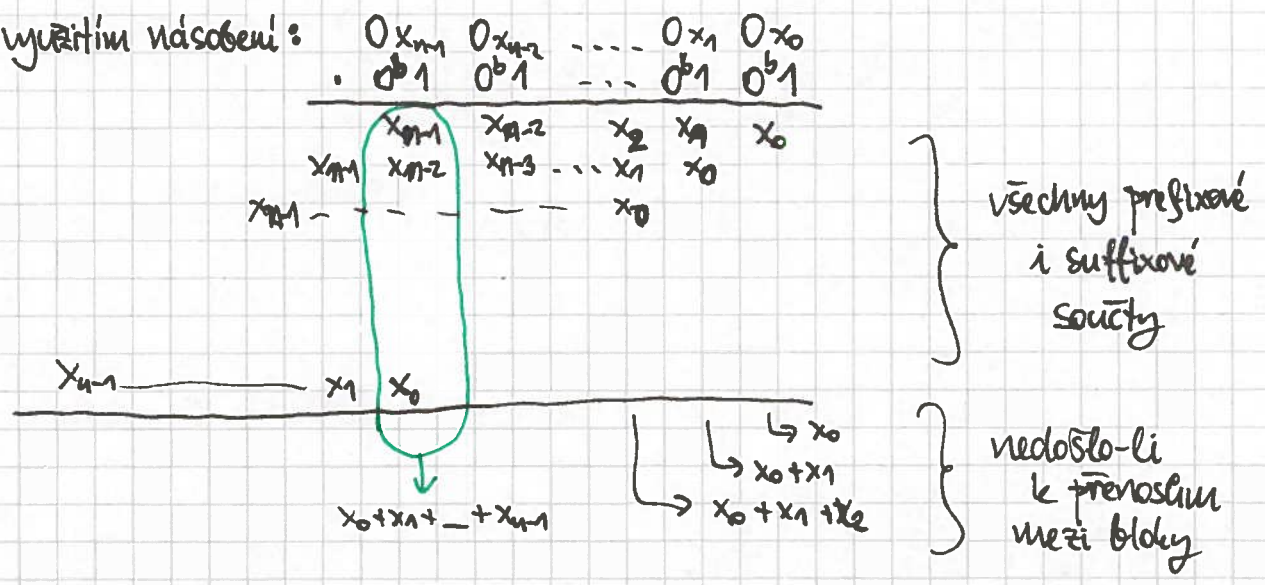 využitím násobení: 0x_{n-1} 0x_{n-2} .... 0x_1 0x_0
. 0^b1 0^b1 ... 0^b1 0^b1
x_{n-1} x_{n-2} x_2 x_1 x_0
x_{n-1} x_{n-2} x_{n-3} ... x_1 x_0
x_{n-1} – – – – – x_0
všechny prefixové
i suffixové
součty
x_{n-1} x_1 x_0
↳ x_0
↳ x_0+x_1
↳ x_0+x_1+x_2
x_0+x_1+_+x_{n-1}
nedošlo-li
k přenosům
mezi bloky